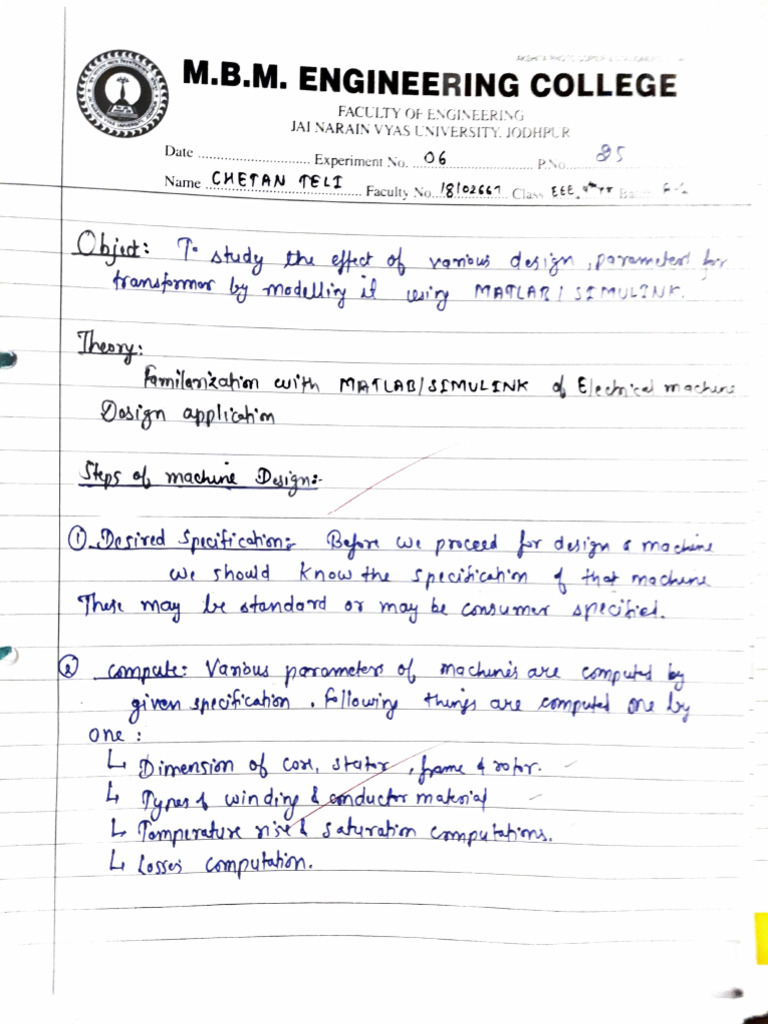 M.B.M. ENGINEERING COLLEGE
FACULTY OF ENGINEERING
JAI NARAIN VYAS UNIVERSITY, JODHPUR
Date .............................. Experiment No. 06 .............................. P.No. 85
Name CHETAN TELI Faculty No. 18/02667 Class EEE,
Object: To study the effect of various design, parameters for
transformer by modelling it using MATLAB / SIMULINK.
Theory:
Familarization with MATLAB/SIMULINK of Electrical machine
Design application
Steps of machine Design:-
① Desired Specification:- Before we proceed for design a machine
we should know the specification of that machine
These may be standard or may be consumer specified.
② compute: Various parameters of machines are computed by
given specification. following things are computed one by
one :
↳ Dimension of core, stator, frame & rotor.
↳ Types of winding & conductor material
↳ Temperature rise & saturation computations.
↳ Losses computation.